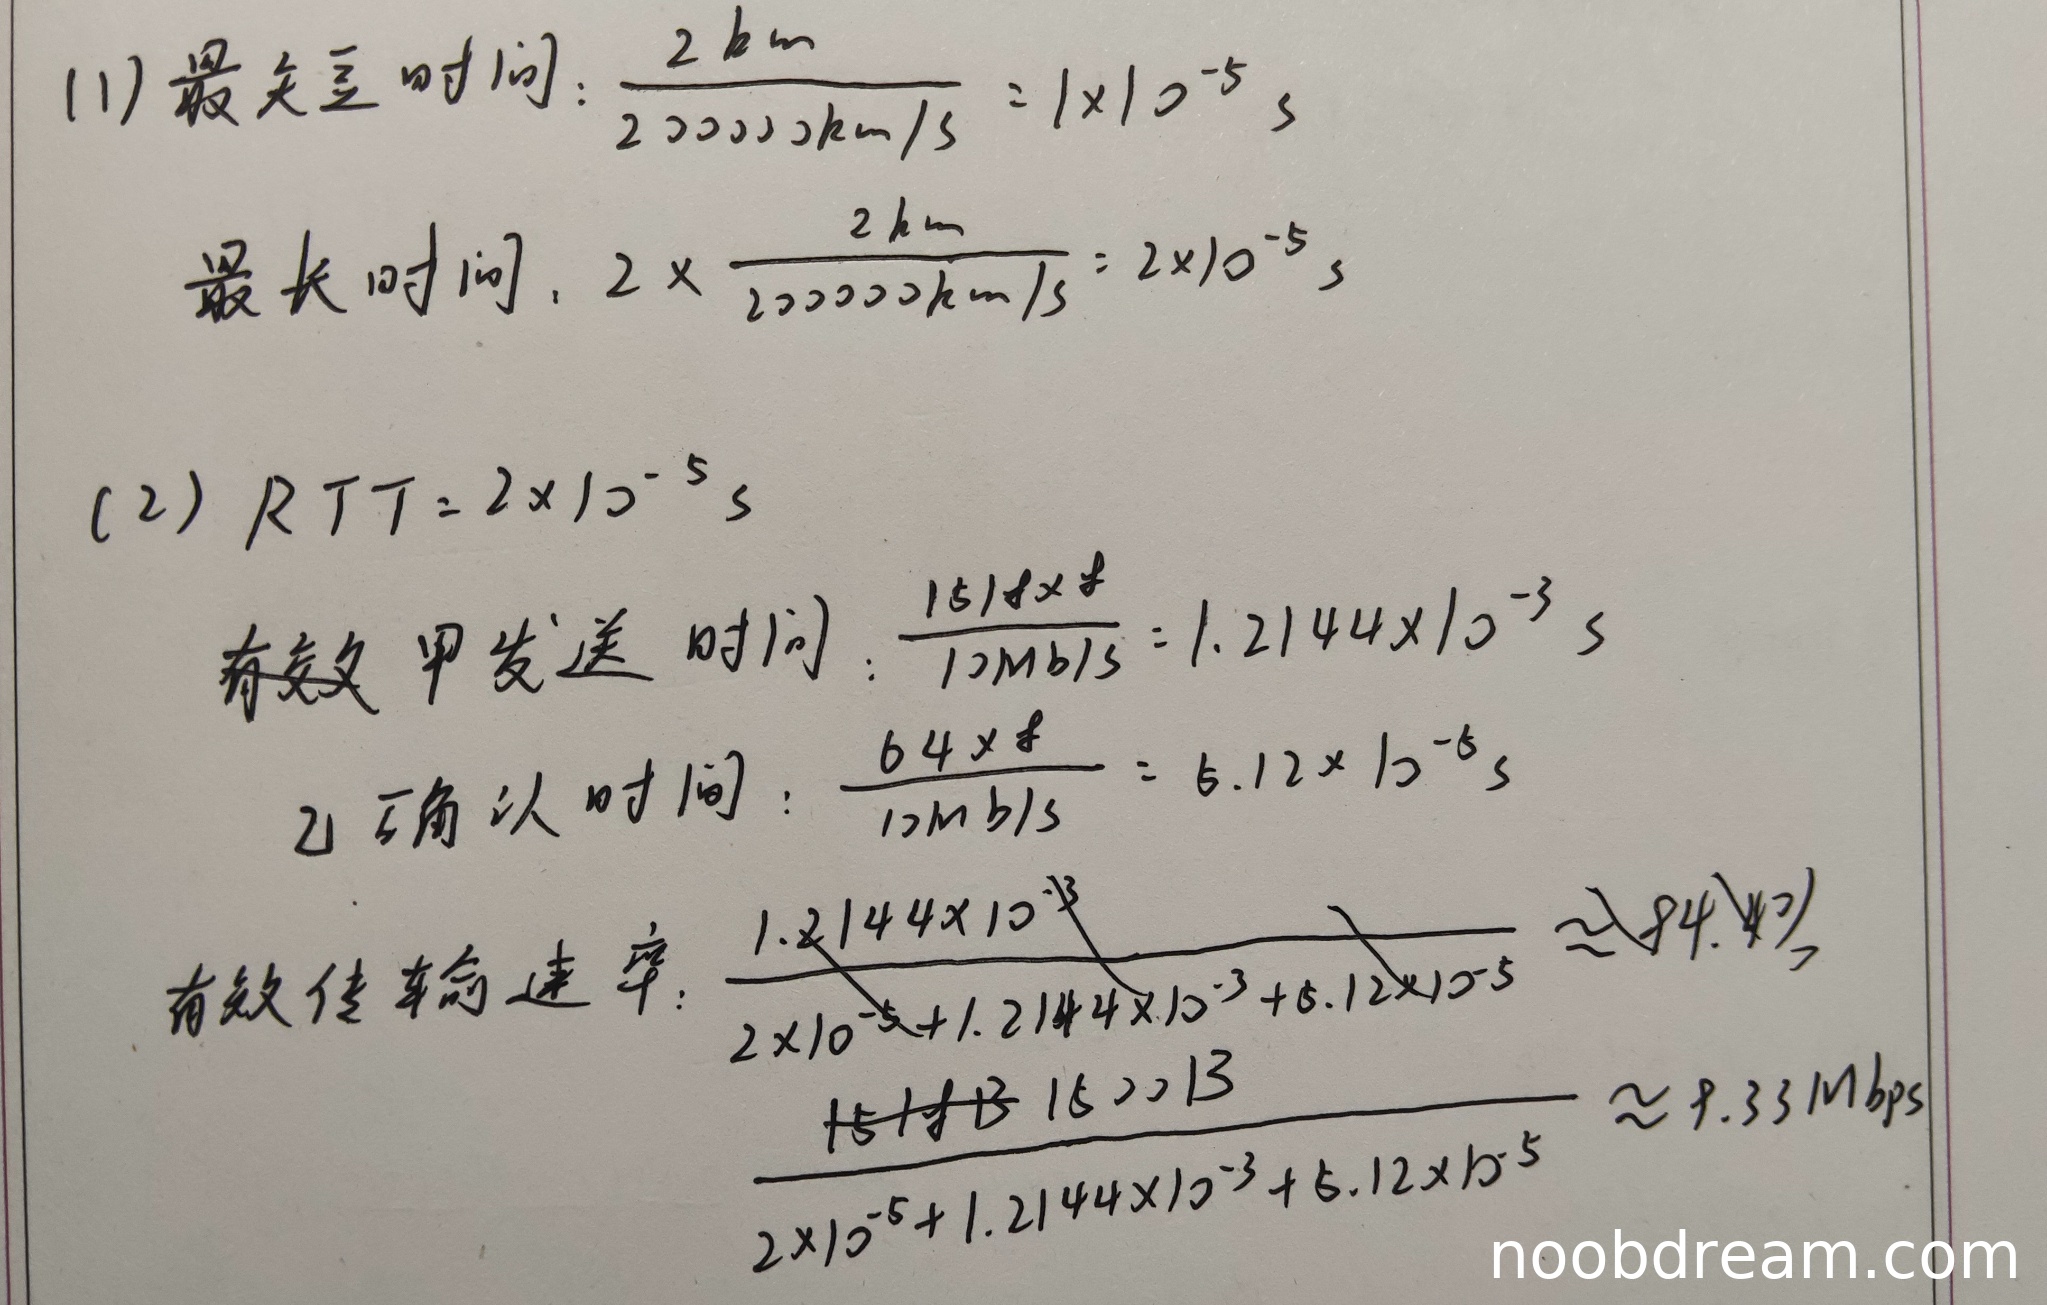 (1) 最短时间: 2km / 200000km/s = 1×10⁻⁵ s
最长时间: 2 × 2km / 200000km/s = 2×10⁻⁵ s
(2) RTT = 2×10⁻⁵ s
有效 甲发送 时间: 1518×8 / 10Mb/s = 1.2144×10⁻³ s
乙确认时间: 64×8 / 10Mb/s = 5.12×10⁻⁵ s
有效传输速率: 1.2144×10⁻³ / 2×10⁻⁵+1.2144×10⁻³+5.12×10⁻⁵ ≈
1518B 1500B / 2×10⁻⁵+1.2144×10⁻³+5.12×10⁻⁵ ≈ 9.33Mbps
noobdream.com